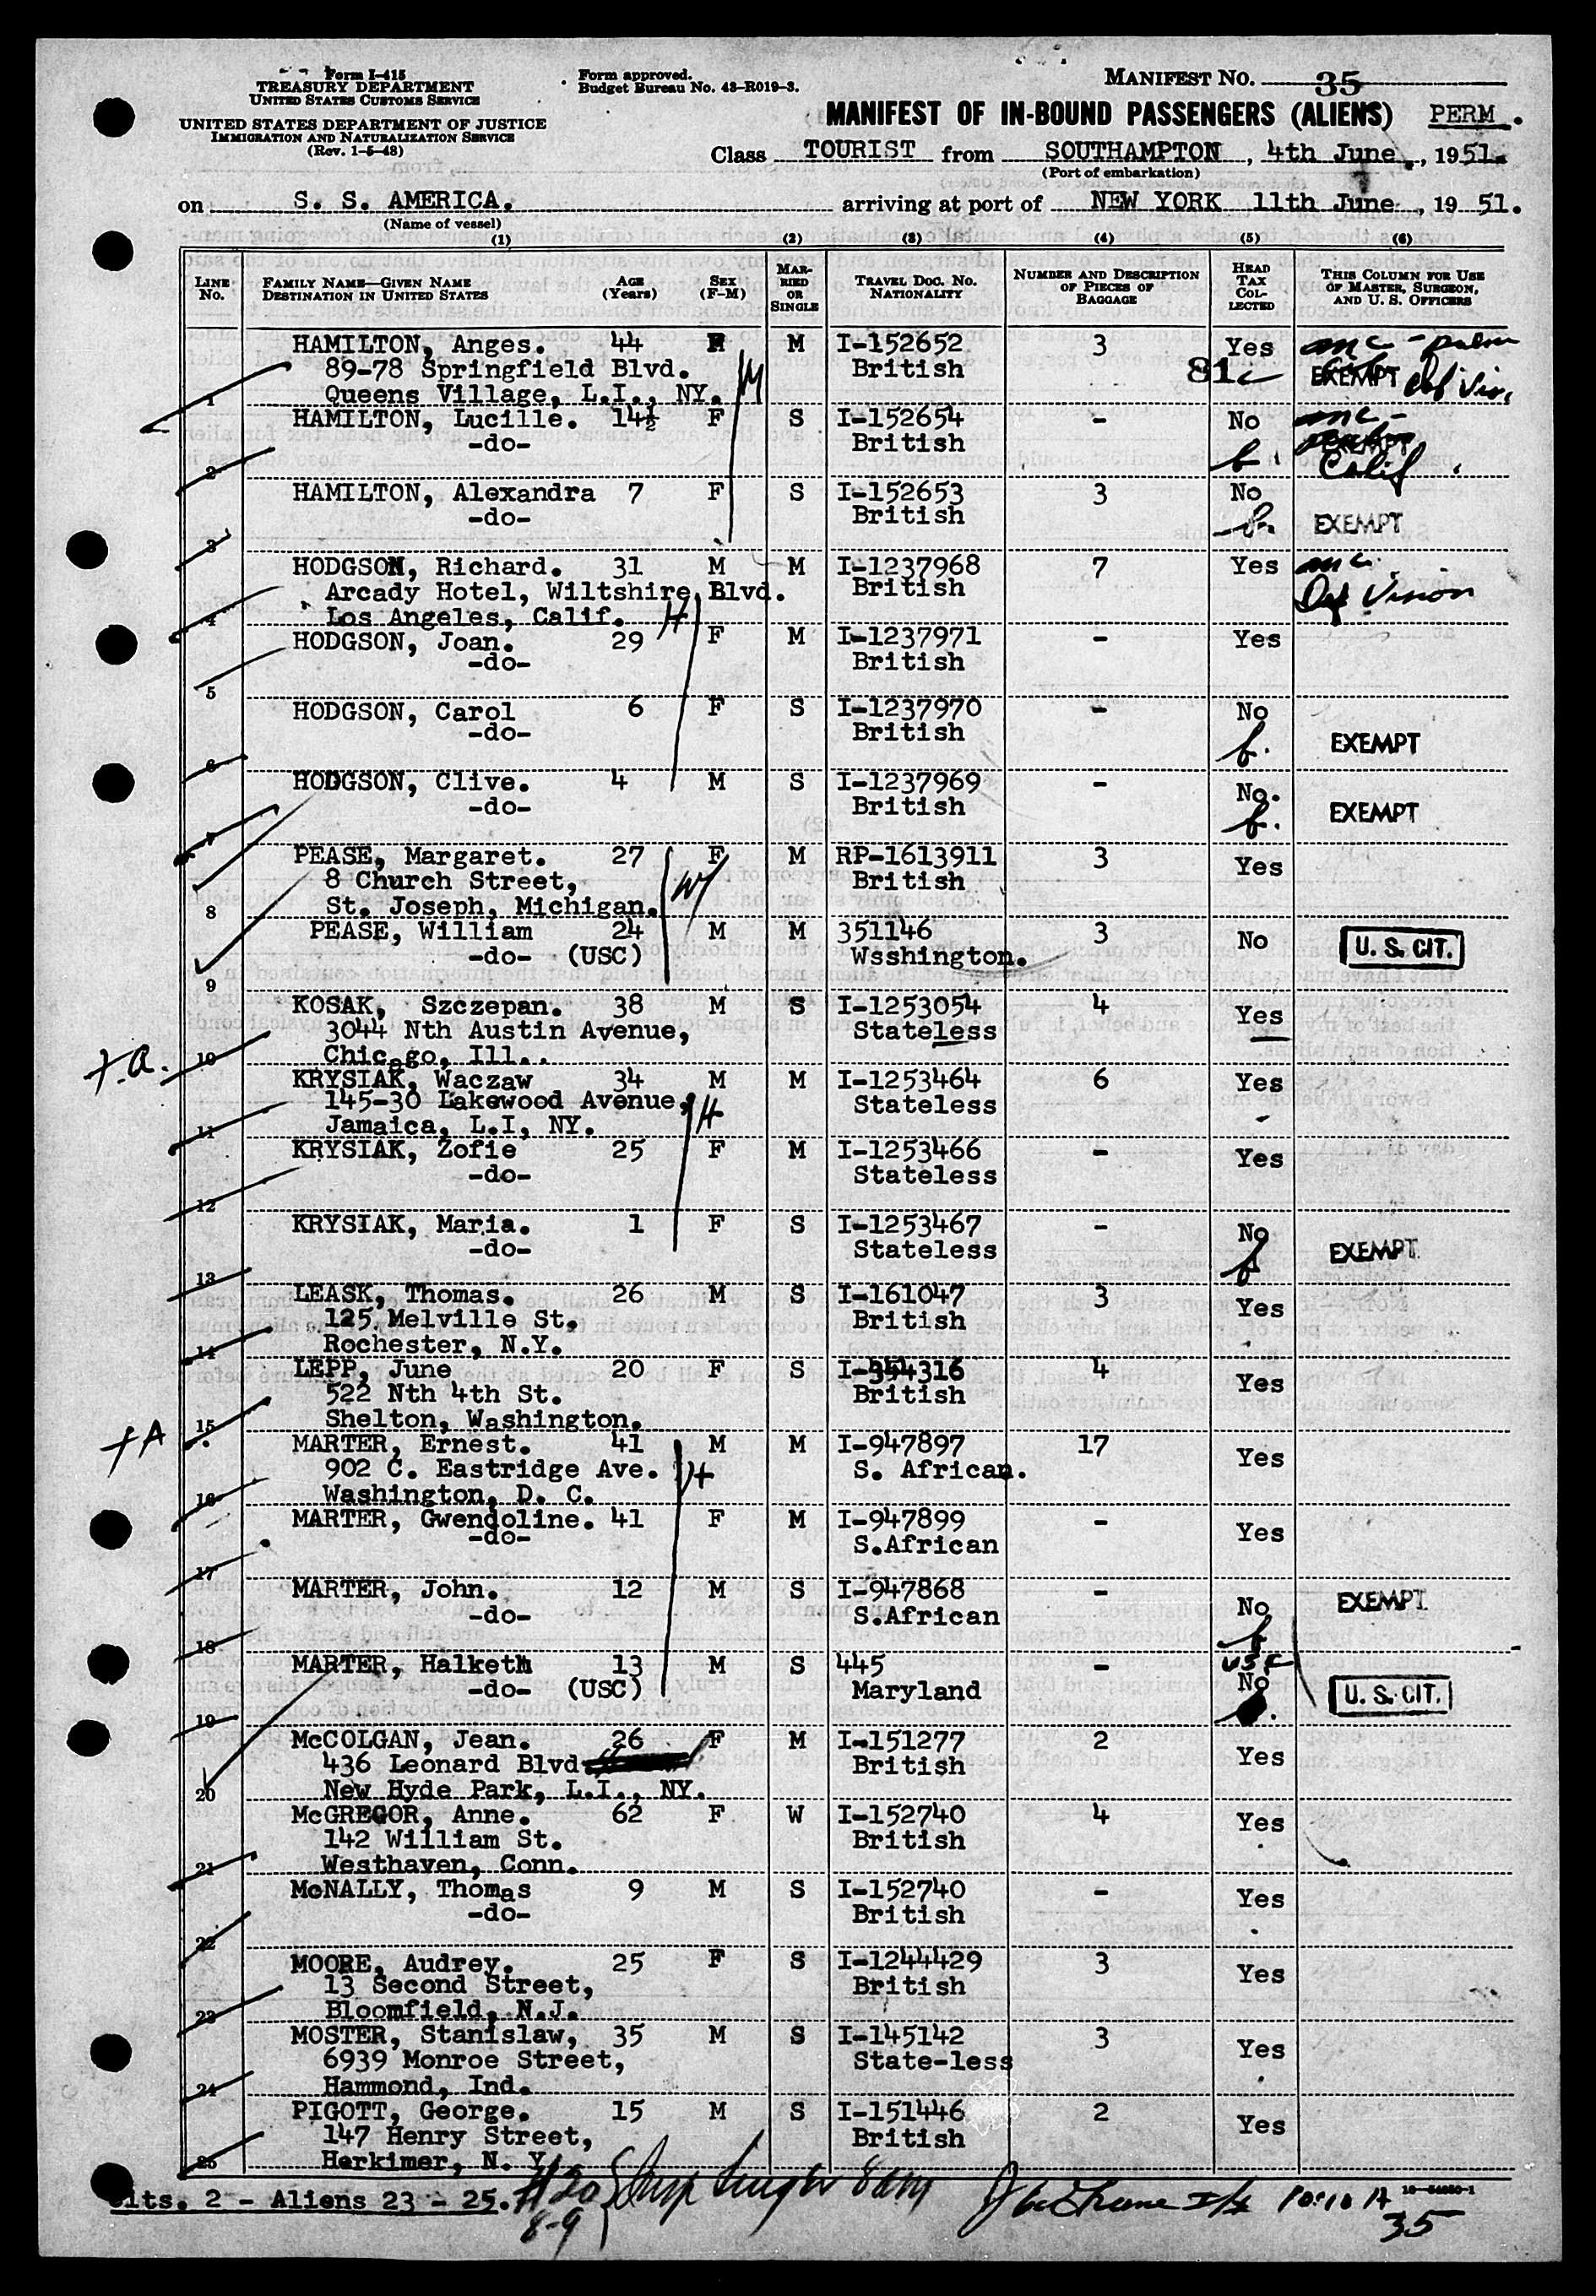 Form I-415
TREASURY DEPARTMENT
UNITED STATES CUSTOMS SERVICE
UNITED STATES DEPARTMENT OF JUSTICE
IMMIGRATION AND NATURALIZATION SERVICE
(Rev. 1-5-48)
Form approved.
Budget Bureau No. 43-R019-3.
MANIFEST NO. 35
MANIFEST OF IN-BOUND PASSENGERS (ALIENS) PERM.
Class TOURIST from SOUTHAMPTON, 4th June., 1951.
(Port of embarkation)
on S. S. AMERICA. arriving at port of NEW YORK 11th June, 1951.
(Name of vessel)
(1) (2) (3) (4) (5) (6)
LINE No. FAMILY NAME—GIVEN NAME DESTINATION IN UNITED STATES AGE (Years) SEX (F-M) MARRIED OR SINGLE TRAVEL DOC. NO. NATIONALITY NUMBER AND DESCRIPTION OF PIECES OF BAGGAGE HEAD TAX COLLECTED THIS COLUMN FOR USE OF MASTER, SURGEON, AND U. S. OFFICERS
HAMILTON, Anges. 44 M I-152652 3 Yes mc -
89-78 Springfield Blvd. M British 81 EXEMPT
1 Queens Village, L.I., NY. Def Vis.
HAMILTON, Lucille. 14½ F S I-152654 - No mc -
-do- British EXEMPT
2 Calif
HAMILTON, Alexandra 7 F S I-152653 3 No
-do- British EXEMPT
3
HODGSON, Richard. 31 M M I-1237968 7 Yes mc.
Arcady Hotel, Wiltshire Blvd. British Def Vision
4 Los Angeles, Calif. H
HODGSON, Joan. 29 F M I-1237971 - Yes
-do- British
5
HODGSON, Carol 6 F S I-1237970 - No
-do- British EXEMPT
6
HODGSON, Clive. 4 M S I-1237969 - No.
-do- British EXEMPT
7
PEASE, Margaret. 27 F M RP-1613911 3 Yes
8 Church Street, W British
8 St. Joseph, Michigan.
PEASE, William 24 M M 351146 3 No U. S. CIT.
-do- (USC) Wsshington.
9
KOSAK, Szczepan. 38 M S I-1253054 4 Yes
3044 Nth Austin Avenue, Stateless
10 Chicago, Ill..
KRYSIAK, Waczaw 34 M M I-1253464 6 Yes
145-30 Lakewood Avenue, H Stateless
11 Jamaica, L.I, NY.
KRYSIAK, Zofie 25 F M I-1253466 - Yes
-do- Stateless
12
KRYSIAK, Maria. 1 F S I-1253467 - No
-do- Stateless EXEMPT
13
LEASK, Thomas. 26 M S I-161047 3 Yes
125 Melville St, British
14 Rochester, N.Y.
LEPP, June 20 F S I-354316 4 Yes
522 Nth 4th St. British
15 Shelton, Washington.
MARTER, Ernest. 41 M M I-947897 17 Yes
902 C. Eastridge Ave. H S. African.
16 Washington, D. C.
MARTER, Gwendoline. 41 F M I-947899 - Yes
-do- S.African
17
MARTER, John. 12 M S I-947868 - No EXEMPT
-do- S.African
18
MARTER, Halketh 13 M S 445 - USC No
-do- (USC) Maryland U. S. CIT.
19
McCOLGAN, Jean. 26 F M I-151277 2 Yes
436 Leonard Blvd British
20 New Hyde Park, L.I., NY.
McGREGOR, Anne. 62 F W I-152740 4 Yes
142 William St. British
21 Westhaven, Conn.
McNALLY, Thomas 9 M S I-152740 - Yes
-do- British
22
MOORE, Audrey. 25 F S I-1244429 3 Yes
13 Second Street, British
23 Bloomfield, N.J.
MOSTER, Stanislaw, 35 M S I-145142 3 Yes
6939 Monroe Street, State-less
24 Hammond, Ind.
PIGOTT, George. 15 M S I-151446 2 Yes
147 Henry Street, British
25 Herkimer, N. Y.
Cits. 2 - Aliens 23 - 25.
8-9
35
16-54050-1